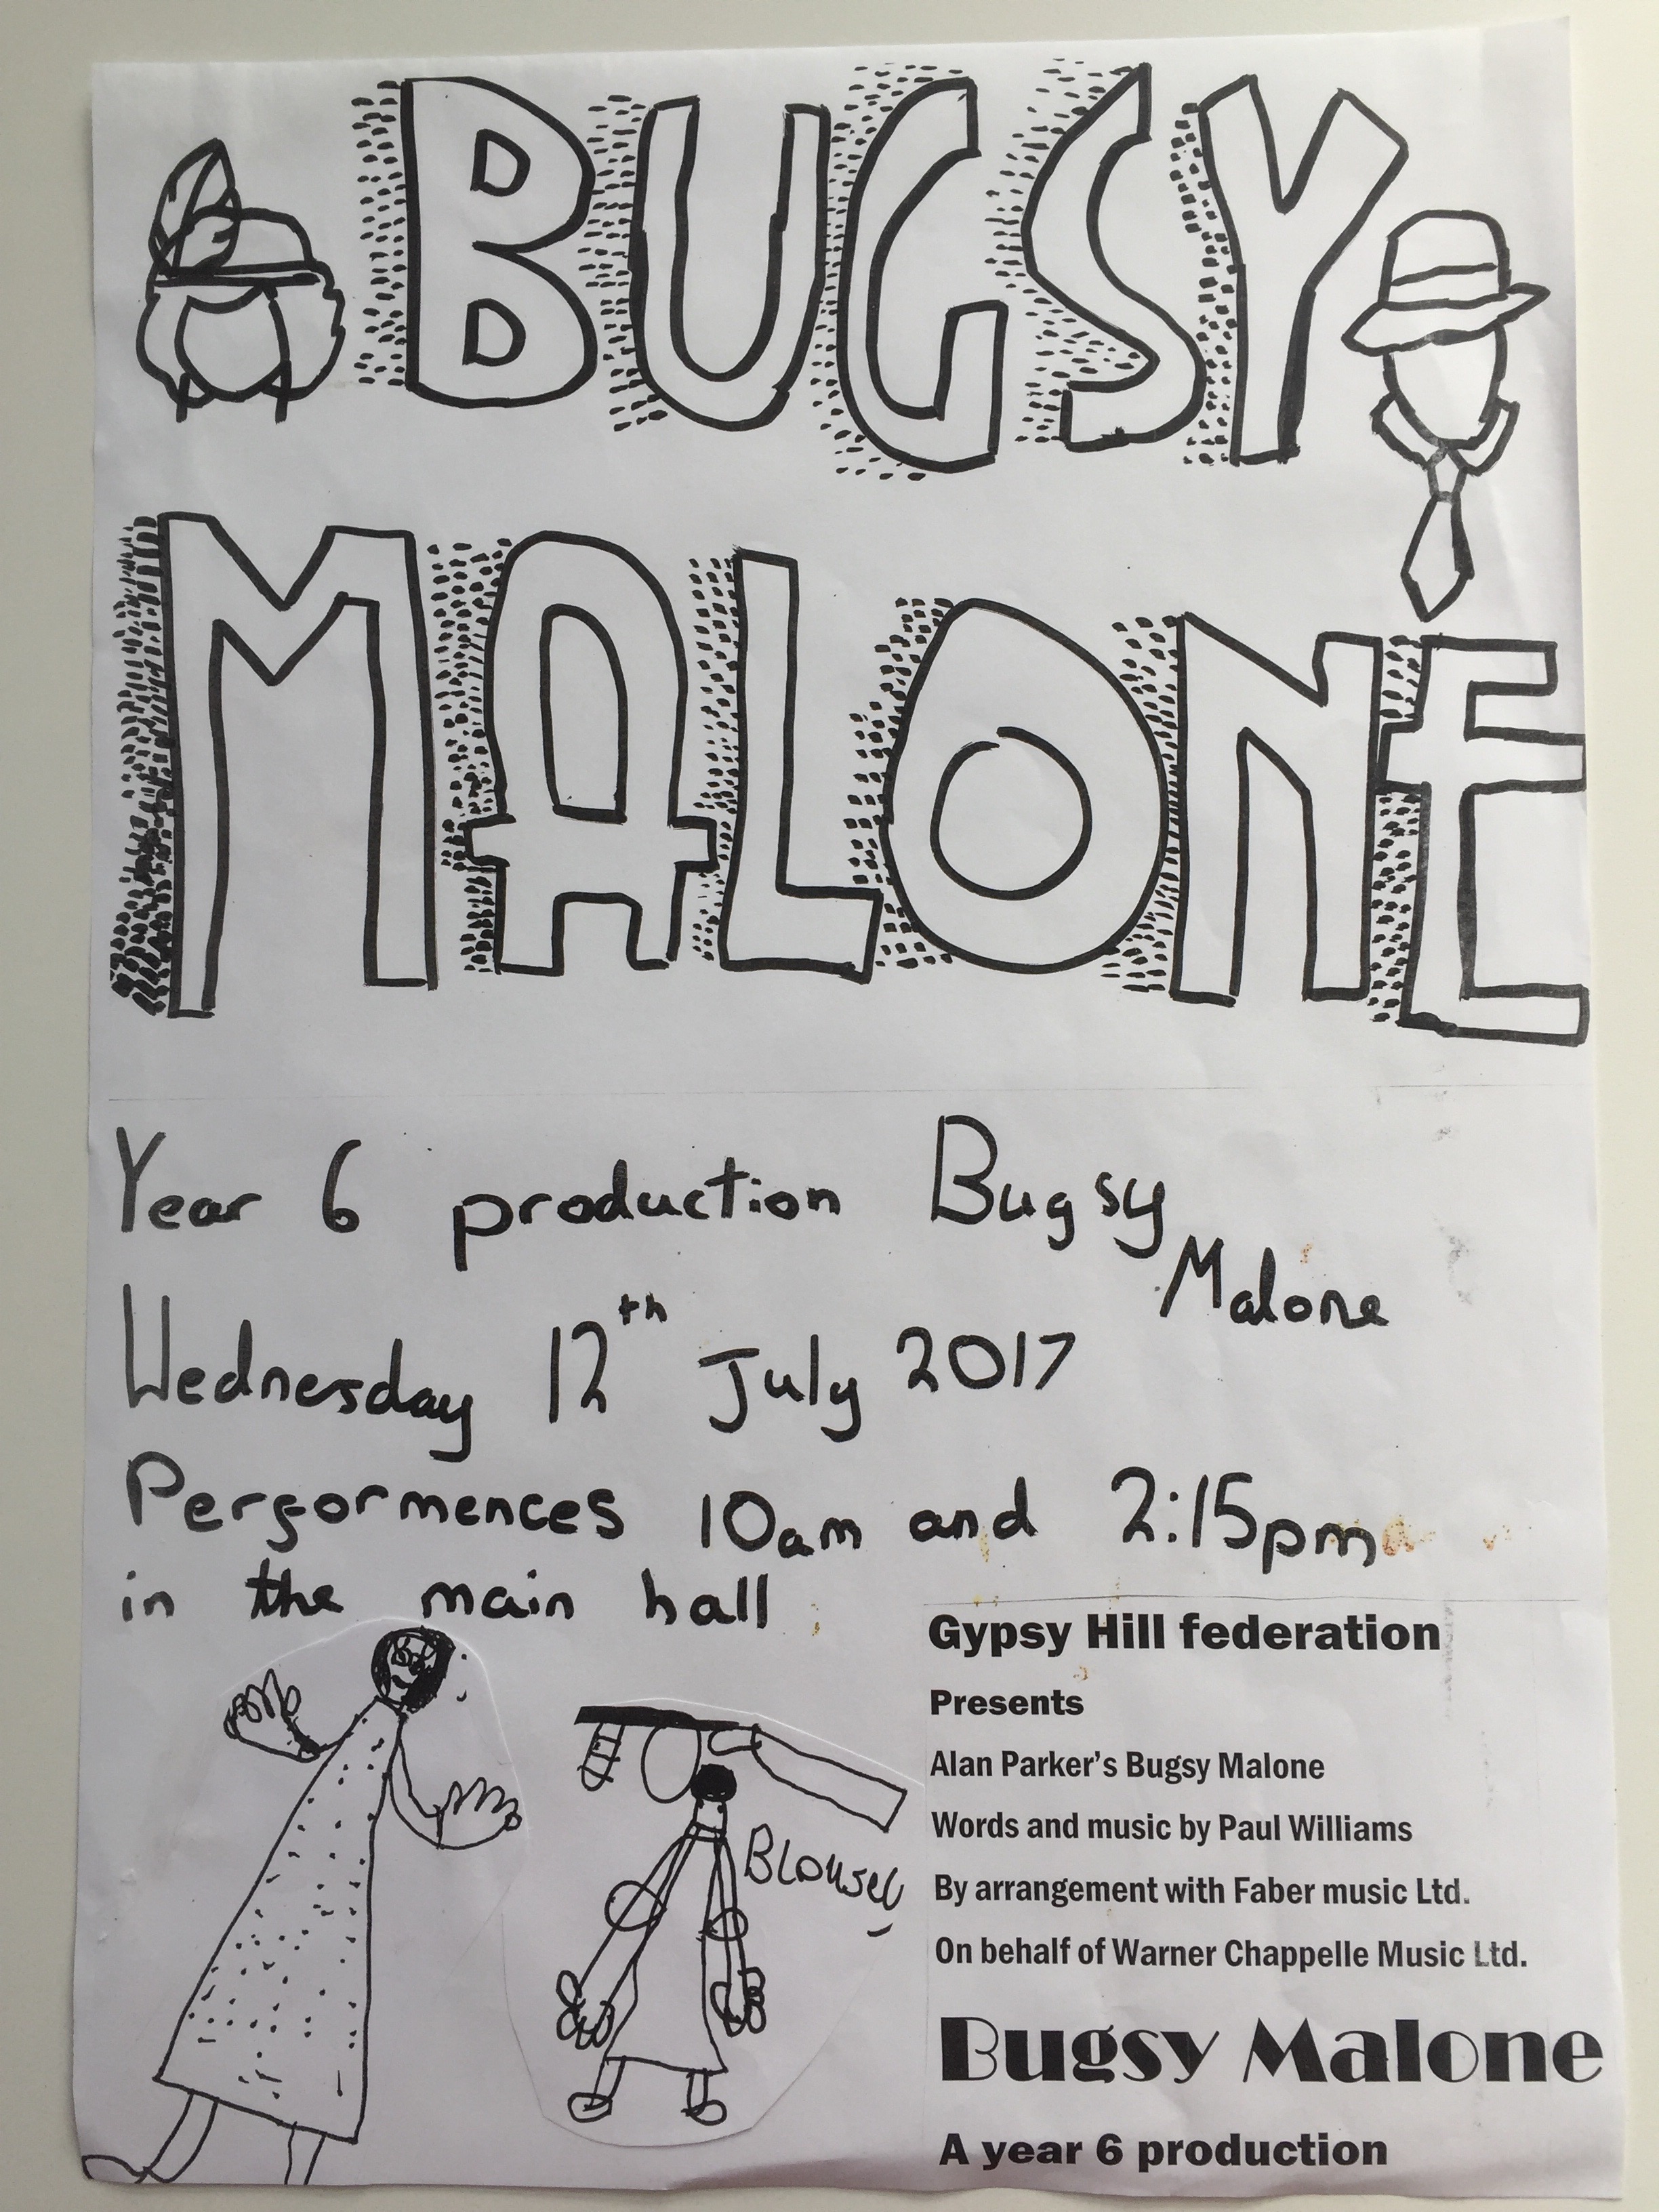 BUGSY
MALONE
Year 6 production Bugsy
Malone
Wednesday 12th July 2017
Performences 10am and 2:15pm
in the main hall
Gypsy Hill federation
Presents
Alan Parker's Bugsy Malone
Words and music by Paul Williams
By arrangement with Faber music Ltd.
On behalf of Warner Chappelle Music Ltd.
Bugsy Malone
A year 6 production
Blousey